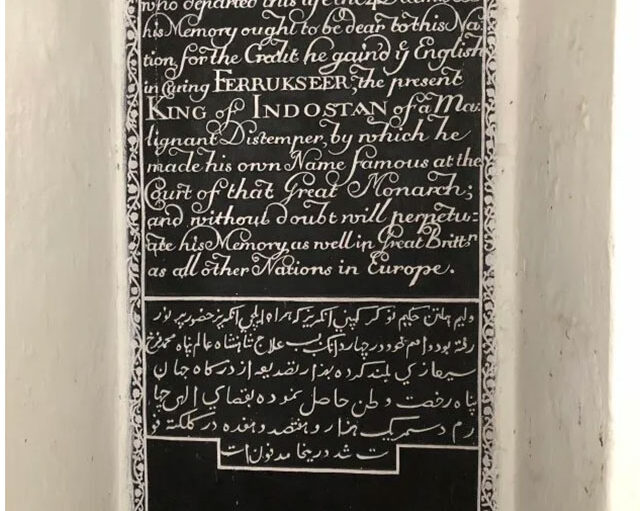 who departed this life the 4 Decem
his Memory ought to be dear to this Na
tion, for the Credit he gain'd yͤ English
in Curing FERRUKSEER, the present
KING of INDOSTAN of a Ma-
lignant Distemper, by which he
made his own Name famous at the
Court of that Great Monarch;
and without doubt will perpetu-
ate his Memory, as well in Great Brittⁿ
as all other Nations in Europe.
وليم هملتن حكيم نوكر كمپني انگريز كه همراه ايلچي انگريز حضور پر نور
رفته بود و اسم خود در چهار دانگ بسبب علاج شاهنشاه عالم پناه محمد فرخ
سير غازي بلند كرده بهزار تصديعه از درگاه جهان
پناه رخصت وطن حاصل نموده بقضاي الهي چها
رم دسمبر يكهزار و هفتصد و هفده در كلكته فو
ت شد درينجا مدفون است